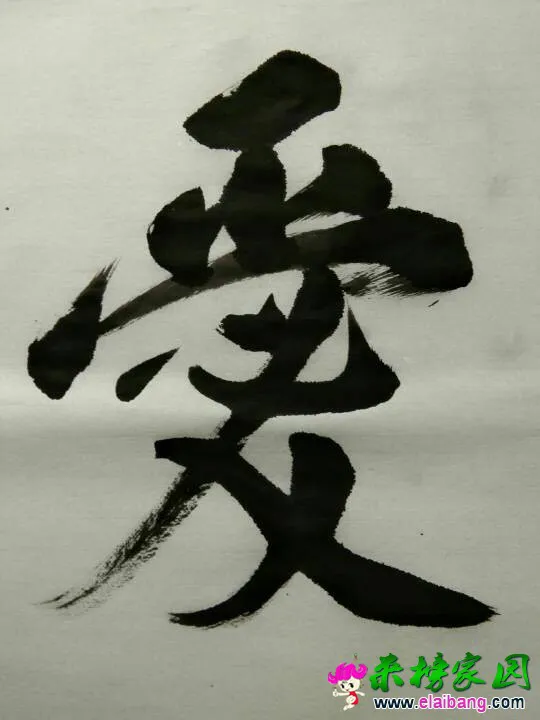 愛
来榜家园
www.elaibang.com